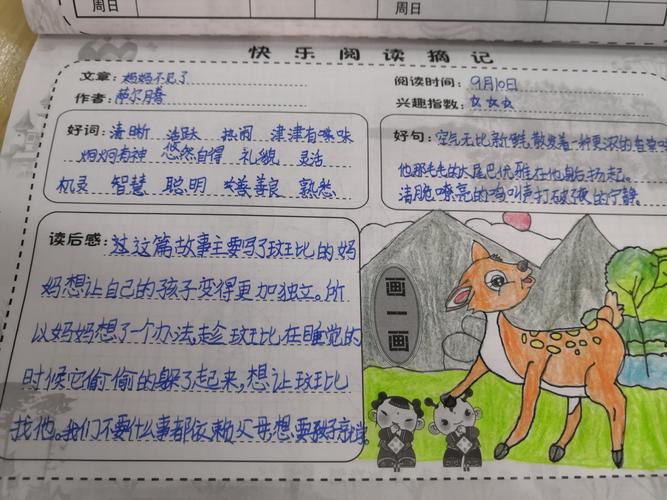 周日
周日
快乐阅读摘记
文章：妈妈不见了
阅读时间：9月10日
作者：萨尔月答
兴趣指数：
好词：清晰 活跃 热闹 津津有味
炯炯有神 悠然自得 礼貌 灵活
机灵 智慧 聪明 善良 熟悉
好句：空气无比新鲜，散发着一种更浓的
他那毛毛的大尾巴优雅在他身后扬起。
清脆嘹亮的鸣叫声打破了夜的宁静。
读后感：这篇故事主要写了斑比的妈
妈想让自己的孩子变得更加独立。所
以妈妈想了一个办法，趁斑比在睡觉的
时候它偷偷的躲了起来，想让斑比
找他。我们不要什么事都依赖父母，想要
画一画